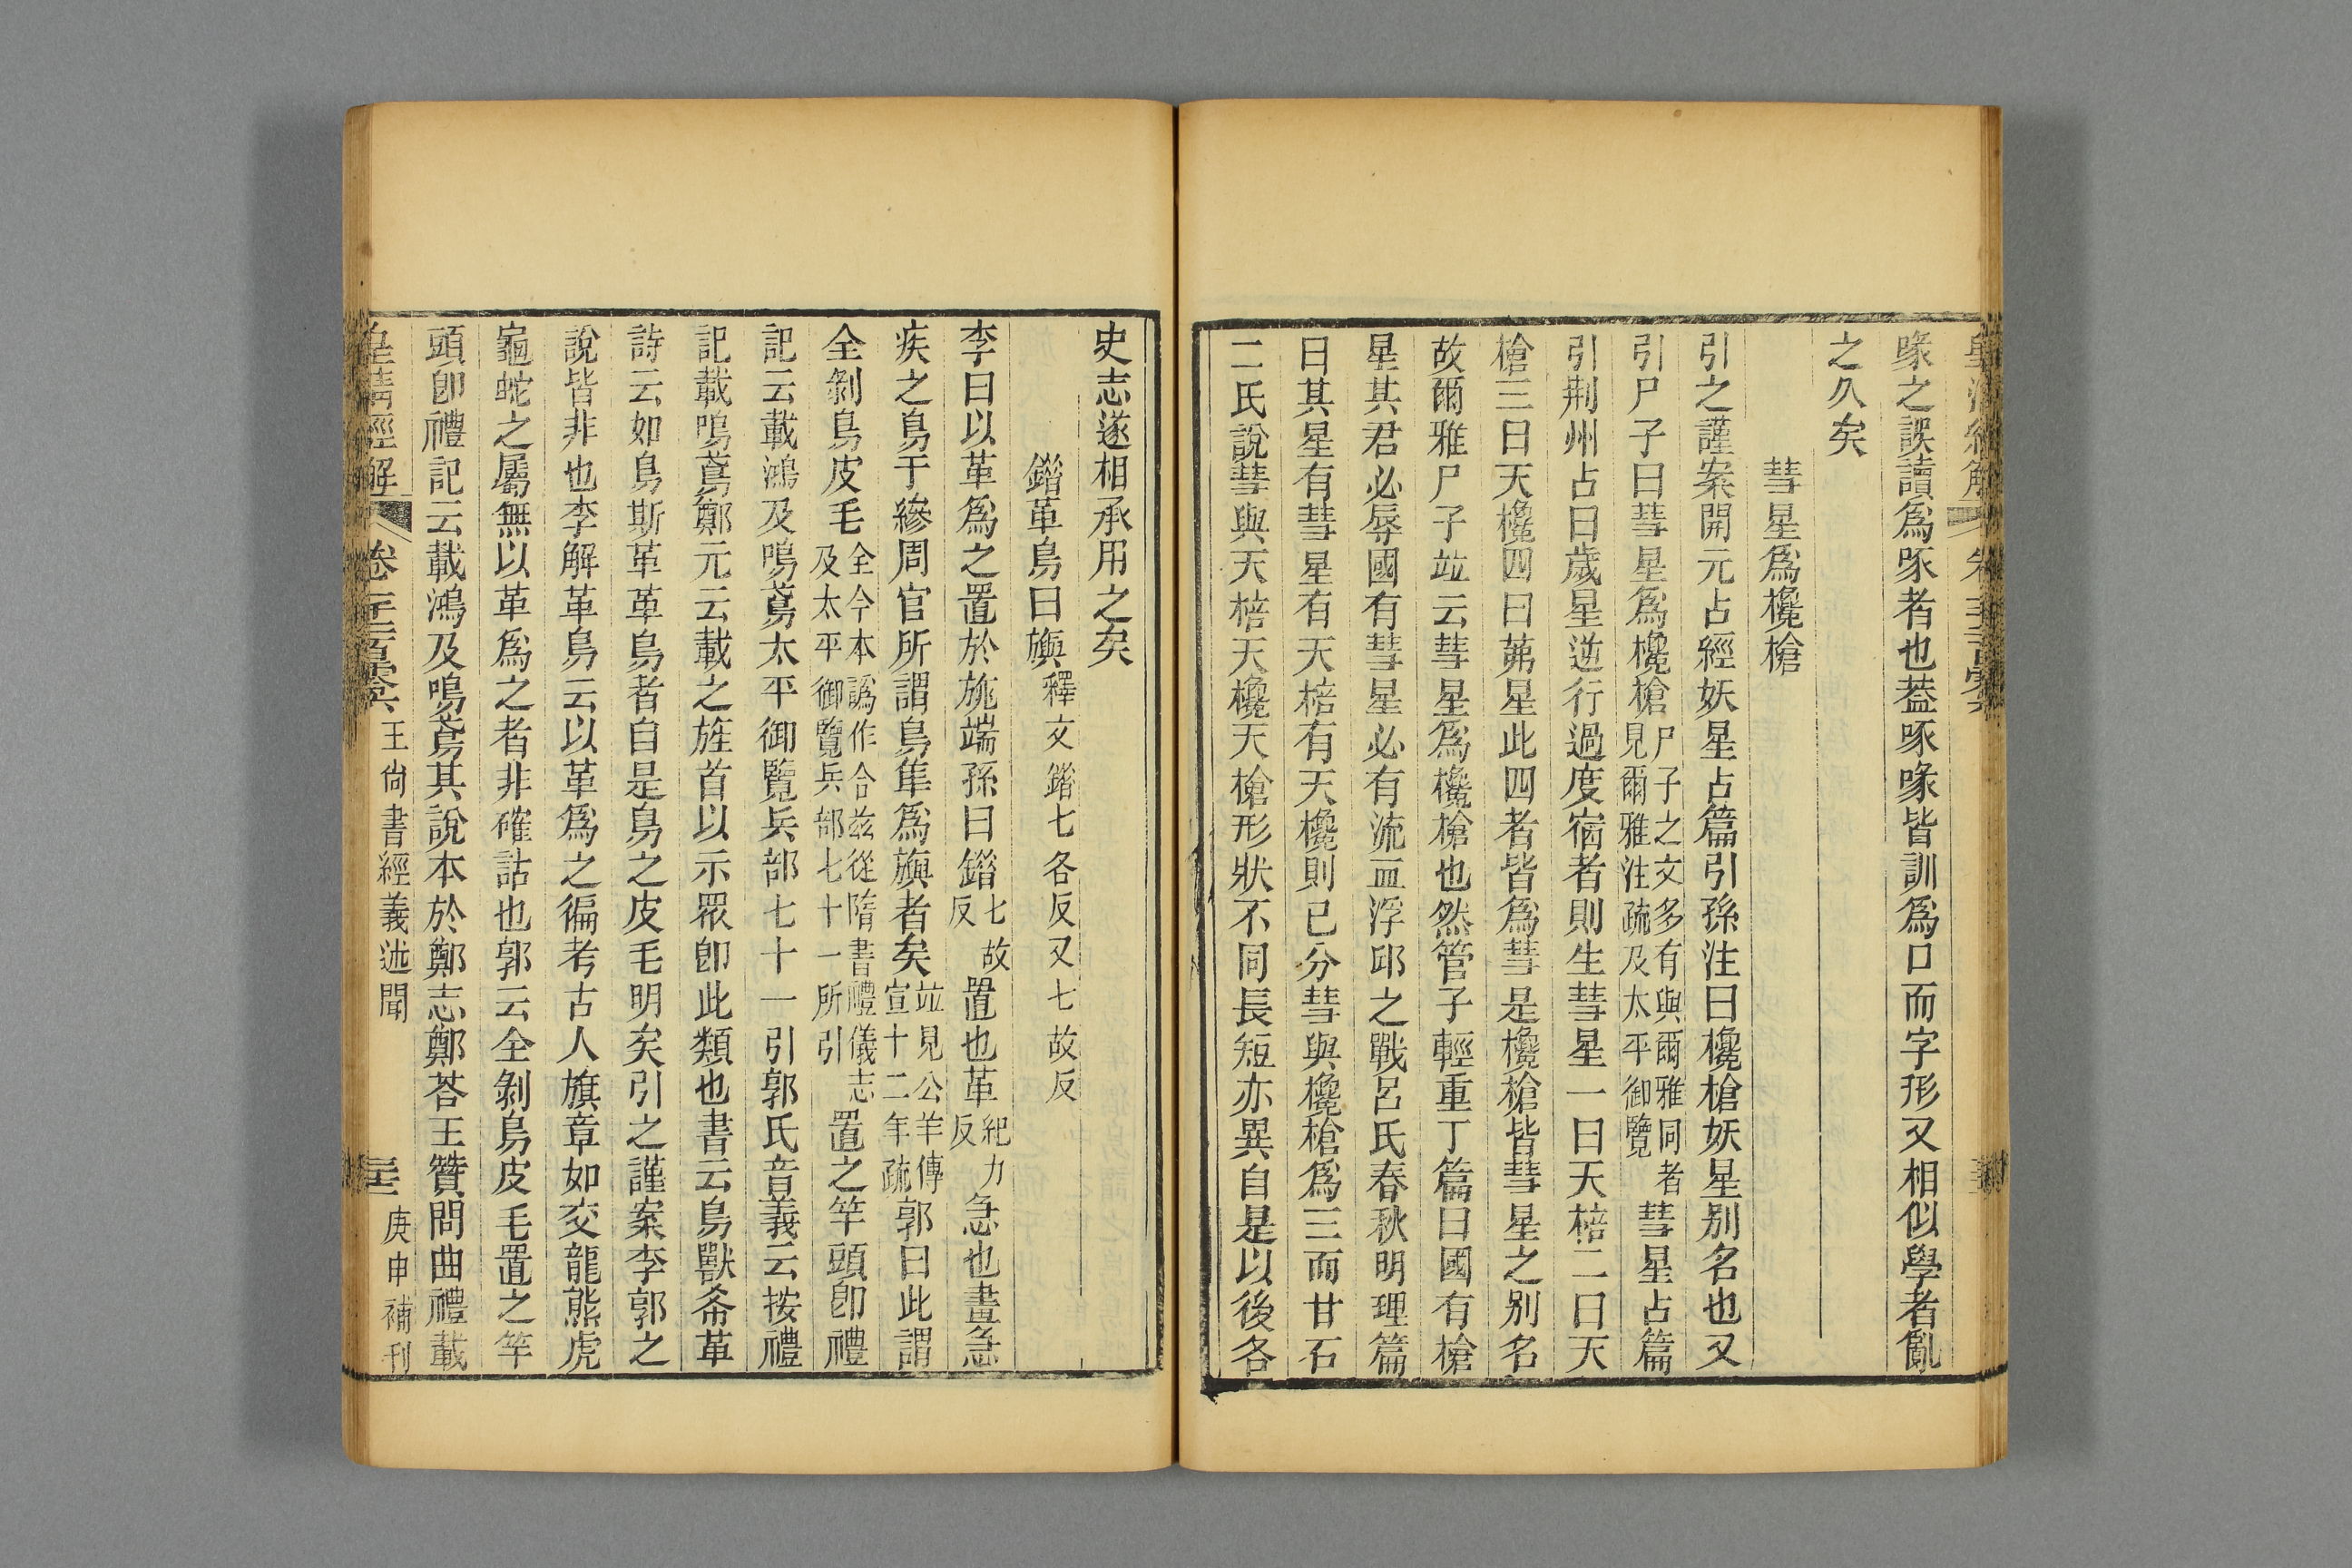 喙之誤讀爲啄者也葢啄喙皆訓爲口而字形又相似學者亂
之久矣
彗星爲欃槍
引之謹案開元占經妖星占篇引孫注曰欃槍妖星别名也又
引尸子曰彗星爲欃槍尸子之文多有與爾雅同者見爾雅注疏及太平御覽彗星占篇
引荆州占曰歲星逆行過度宿者則生彗星一曰天棓二曰天
槍三曰天欃四曰茀星此四者皆爲彗是欃槍皆彗星之别名
故爾雅尸子竝云彗星爲欃槍也然管子輕重丁篇曰國有槍
星其君必辱國有彗星必有流血浮邱之戰呂氏春秋明理篇
曰其星有彗星有天棓有天欃則已分彗與欃槍爲三而甘石
二氏說彗與天棓天欃天槍形狀不同長短亦異自是以後各
史志遂相承用之矣
錯革鳥曰旟釋文錯七各反又七故反
李曰以革爲之置於旐端孫曰錯七故反置也革紀力反急也畫急
疾之鳥于縿周官所謂鳥隼爲旟者矣竝見公羊傳宣十二年疏郭曰此謂
全剝鳥皮毛全今本譌作合兹從隋書禮儀志及太平御覽兵部七十一所引置之竿頭卽禮
記云載鴻及鳴鳶太平御覽兵部七十一引郭氏音義云按禮
記載鳴鳶鄭元云載之旌首以示眾卽此類也書云鳥獸希革
詩云如鳥斯革革鳥者自是鳥之皮毛明矣引之謹案李郭之
說皆非也李解革鳥云以革爲之徧考古人旗章如交龍熊虎
龜蛇之屬無以革爲之者非確詁也郭云全剝鳥皮毛置之竿
頭卽禮記云載鴻及鳴鳶其說本於鄭志鄭荅王贊問曲禮載
皇清經解 卷一千二百零六 王尙書經義述聞 庚申補刊